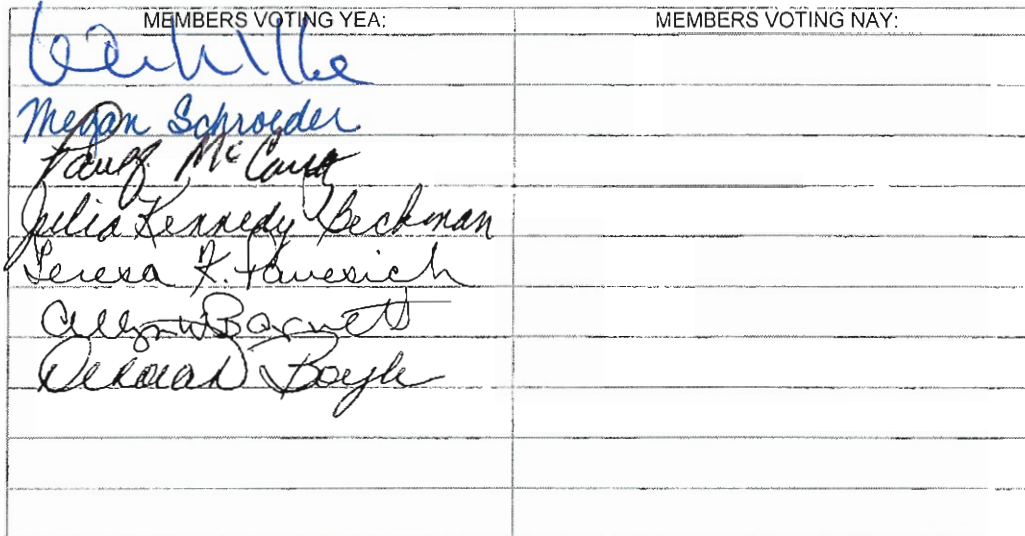 MEMBERS VOTING YEA: MEMBERS VOTING NAY:
Megan Schroeder
Paul J. McCarty
Julia Kennedy Beckman
Teresa K. Pavesich
Barnett
Deborah Boyle